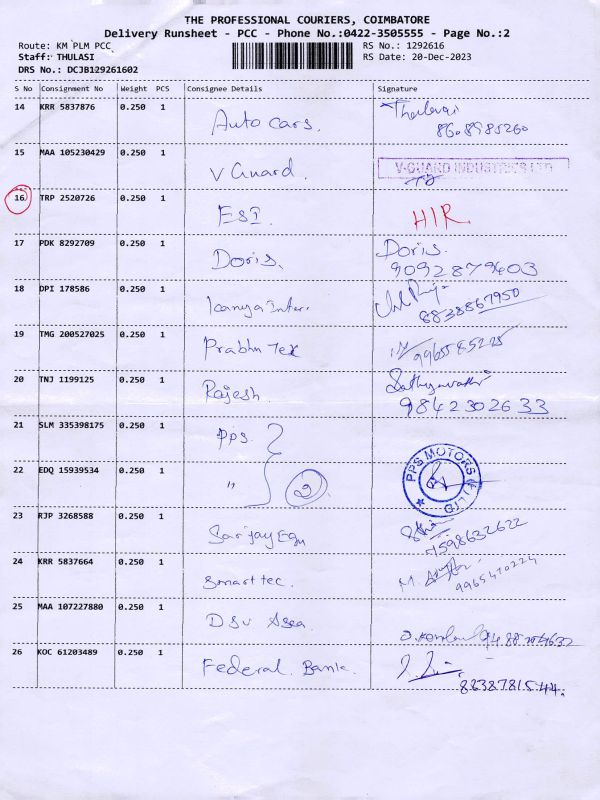 THE PROFESSIONAL COURIERS, COIMBATORE
Delivery Runsheet - PCC - Phone No.:0422-3505555 - Page No.:2
Route: KM PLM PCC RS No.: 1292616
Staff: THULASI RS Date: 20-Dec-2023
DRS No.: DCJB129261602
S No Consignment No Weight PCS Consignee Details Signature
14 KRR 5837876 0.250 1 Auto Cars.
8608985260
15 MAA 105230429 0.250 1 V Guard. V-GUARD INDUSTRIES LTD
16 TRP 2520726 0.250 1 ESI. HIR.
17 PDK 8292709 0.250 1 Doris. Doris.
9092879403
18 DPI 178586 0.250 1
8838867950
19 TMG 200527025 0.250 1 Prabhu Tex 9965585225
20 TNJ 1199125 0.250 1 Rajesh.
9842302633
21 SLM 335398175 0.250 1 PPS.
22 EDQ 15939534 0.250 1 " 2 PPS MOTORS (P) LTD
23 RJP 3268588 0.250 1
7598632622
24 KRR 5837664 0.250 1 Smart tec. M.
9965410224
25 MAA 107227880 0.250 1 DSV
26 KOC 61203489 0.250 1 Federal. Bank.
8838781544.